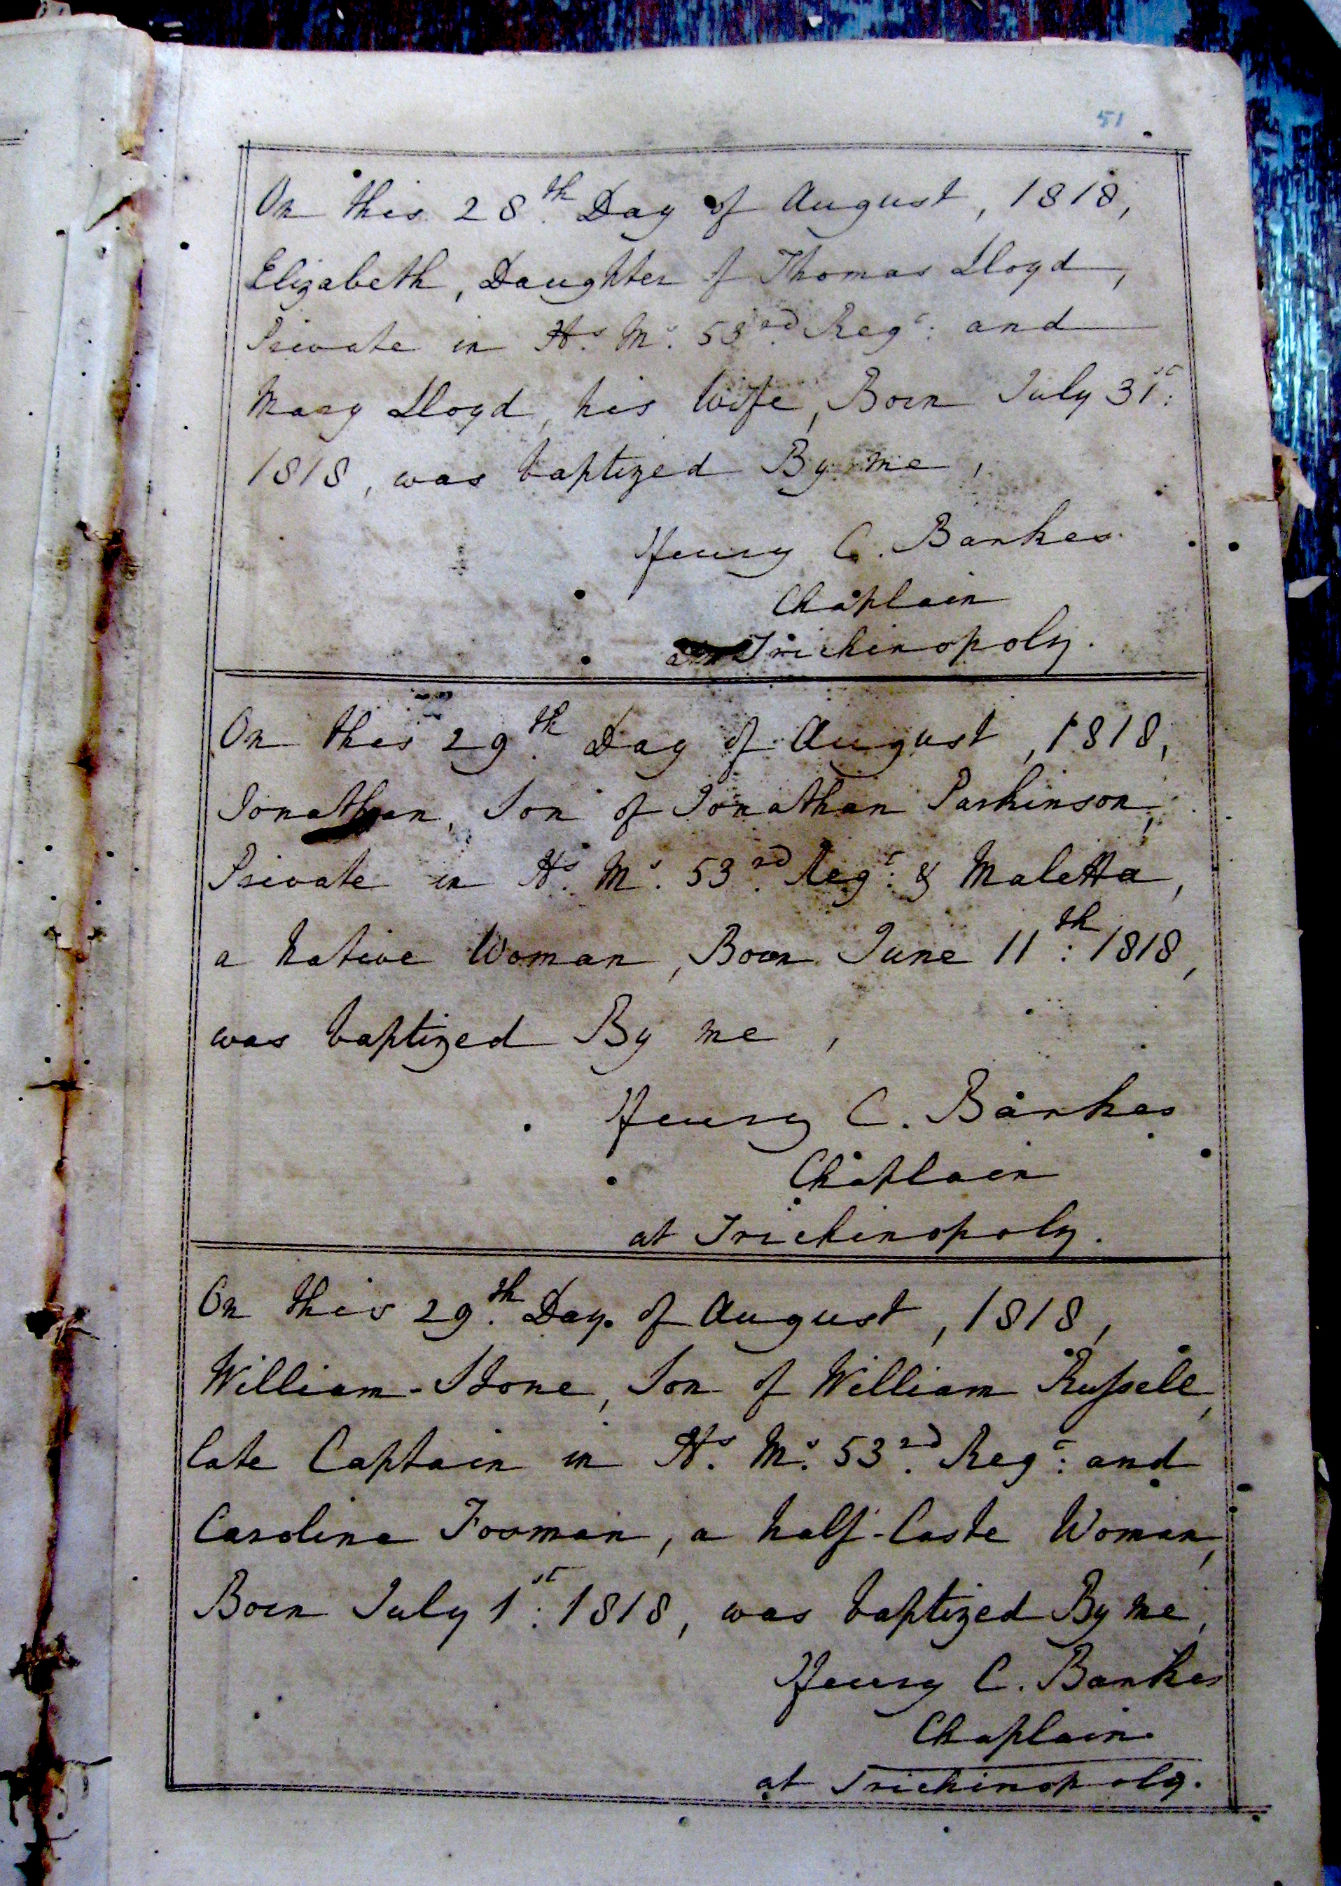 51
On this 28th Day of August, 1818,
Elizabeth, Daughter of Thomas Lloyd,
Private in Hs. Ms. 53rd Regt: and
Mary Lloyd, his Wife, Born July 31st:
1818, was baptized By me,
Henry C. Bankes
Chaplain
at Trichinopoly.
On this 29th Day of August, 1818,
Jonathan, Son of Jonathan Parkinson,
Private in Hs. Ms. 53rd Regt: & Maletta,
a Native Woman, Born June 11th: 1818,
was baptized By me,
Henry C. Bankes
Chaplain
at Trichinopoly.
On this 29th Day of August, 1818,
William-Stone, Son of William Russell,
late Captain in Hs. Ms. 53rd Regt: and
Caroline Foxman, a half-Caste Woman,
Born July 1st: 1818, was baptized By me,
Henry C. Bankes
Chaplain
at Trichinopoly.